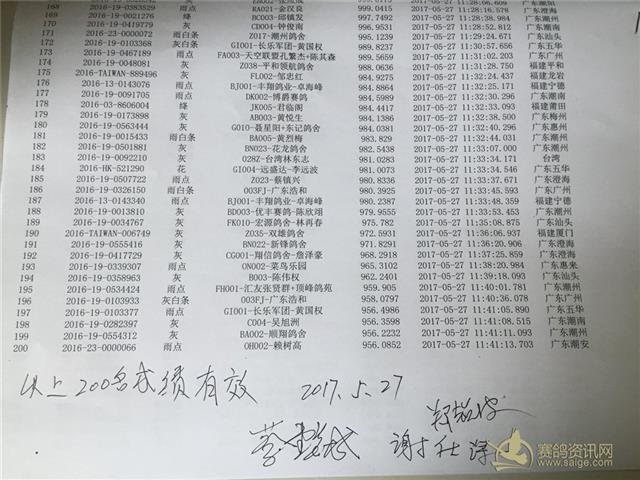 168 2016-19-0383529 雨点 RA021-金汉良 999.0415 2017-05-27 11:28:06.609 广东潮阳
169 2016-19-0021276 绛 BC033-邱镇发 997.7492 2017-05-27 11:28:38.984 广东潮州
170 2016-19-0419779 灰 CD004-钟俊南 996.9531 2017-05-27 11:28:52.812 广东潮州
171 2016-23-0000072 雨白条 Z017-潮州鸽舍 995.1239 2017-05-27 11:29:24.671 广东潮南
172 2016-19-0103368 灰白条 GI001-长乐军团-黄国权 989.8237 2017-05-27 11:30:57.656 广东五华
173 2016-19-0467189 雨点 FA003-天空联盟孔繁杰+陈其森 989.5659 2017-05-27 11:31:02.203 广东广州
174 2016-19-0048081 灰 Z038-平和领航鸽舍 988.0663 2017-05-27 11:31:28.750 福建平和
175 2016-TAIWAN-889496 灰 FL002-邹志红 984.9275 2017-05-27 11:32:24.437 福建龙岩
176 2016-13-0143076 雨点 BJ001-丰翔鸽业-卓海峰 984.8864 2017-05-27 11:32:25.171 福建宁德
177 2016-19-0091705 雨点 DK002-博爵赛鸽 984.5989 2017-05-27 11:32:30.296 广东潮南
178 2016-03-8606004 绛 JK005-君临阁 984.4417 2017-05-27 11:32:33.093 福建莆田
179 2016-19-0173898 灰 AB003-黄悦生 984.1386 2017-05-27 11:32:38.500 广东梅州
180 2016-19-0563444 灰 G010-聂星阳+东记鸽舍 984.0381 2017-05-27 11:32:40.296 广东惠州
181 2016-19-0015433 雨白条 BA005-黄烈梅 983.829 2017-05-27 11:32:44.031 广东潮州
182 2016-19-0501881 灰 BN023-花龙鸽舍 982.5438 2017-05-27 11:33:07.000 广东潮州
183 2016-19-0092210 灰 028Z-台湾林东志 981.0283 2017-05-27 11:33:34.171 台湾
184 2016-HK-521290 花 GI004-远盛达-李远波 981.0071 2017-05-27 11:33:34.546 广东五华
185 2016-19-0507722 雨点 Z023-蔡镇兴 980.8336 2017-05-27 11:33:37.671 广东澄海
186 2016-19-0326150 雨白条 003FJ-广东浩和 980.3925 2017-05-27 11:33:45.593 广东广州
187 2016-13-0143340 雨点 BJ001-丰翔鸽业-卓海峰 980.2387 2017-05-27 11:33:48.359 福建宁德
188 2016-19-0013810 灰 BD003-优丰赛鸽-陈欣翊 979.9555 2017-05-27 11:33:53.453 广东潮州
189 2016-19-0034767 灰 FK010-宏源鸽舍-林再春 975.782 2017-05-27 11:35:08.875 广东汕头
190 2016-TAIWAN-006749 灰 Z035-双雄鸽舍 972.5931 2017-05-27 11:36:06.937 福建厦门
191 2016-19-0555416 灰 BN022-新锋鸽舍 971.8291 2017-05-27 11:36:20.906 广东澄海
192 2016-19-0417729 灰 CG001-翔信鸽舍-詹泽豪 968.2918 2017-05-27 11:37:25.859 广东澄海
193 2016-19-0339307 雨点 ON002-菜鸟乐园 965.3102 2017-05-27 11:38:20.984 广东惠来
194 2016-19-0358963 灰 B003-陈伟权 962.2401 2017-05-27 11:39:18.093 广东汕头
195 2016-19-0534424 雨点 FH001-汇友张贤群+顶峰鸽苑 959.905 2017-05-27 11:40:01.781 广东潮州
196 2016-19-0103933 灰白条 003FJ-广东浩和 958.0797 2017-05-27 11:40:36.078 广东广州
197 2016-19-0103377 雨点 GI001-长乐军团-黄国权 956.4986 2017-05-27 11:41:05.890 广东五华
198 2016-19-0282397 灰 C004-吴旭洲 956.3598 2017-05-27 11:41:08.515 广东潮南
199 2016-19-0554312 灰 BA002-顺翔鸽舍 956.2232 2017-05-27 11:41:11.093 广东潮州
200 2016-23-0000066 雨点 OH002-赖树高 956.0852 2017-05-27 11:41:13.703 广东潮安
以上200名成绩有效 2017.5.27
赛鸽资讯网
www.saige.com